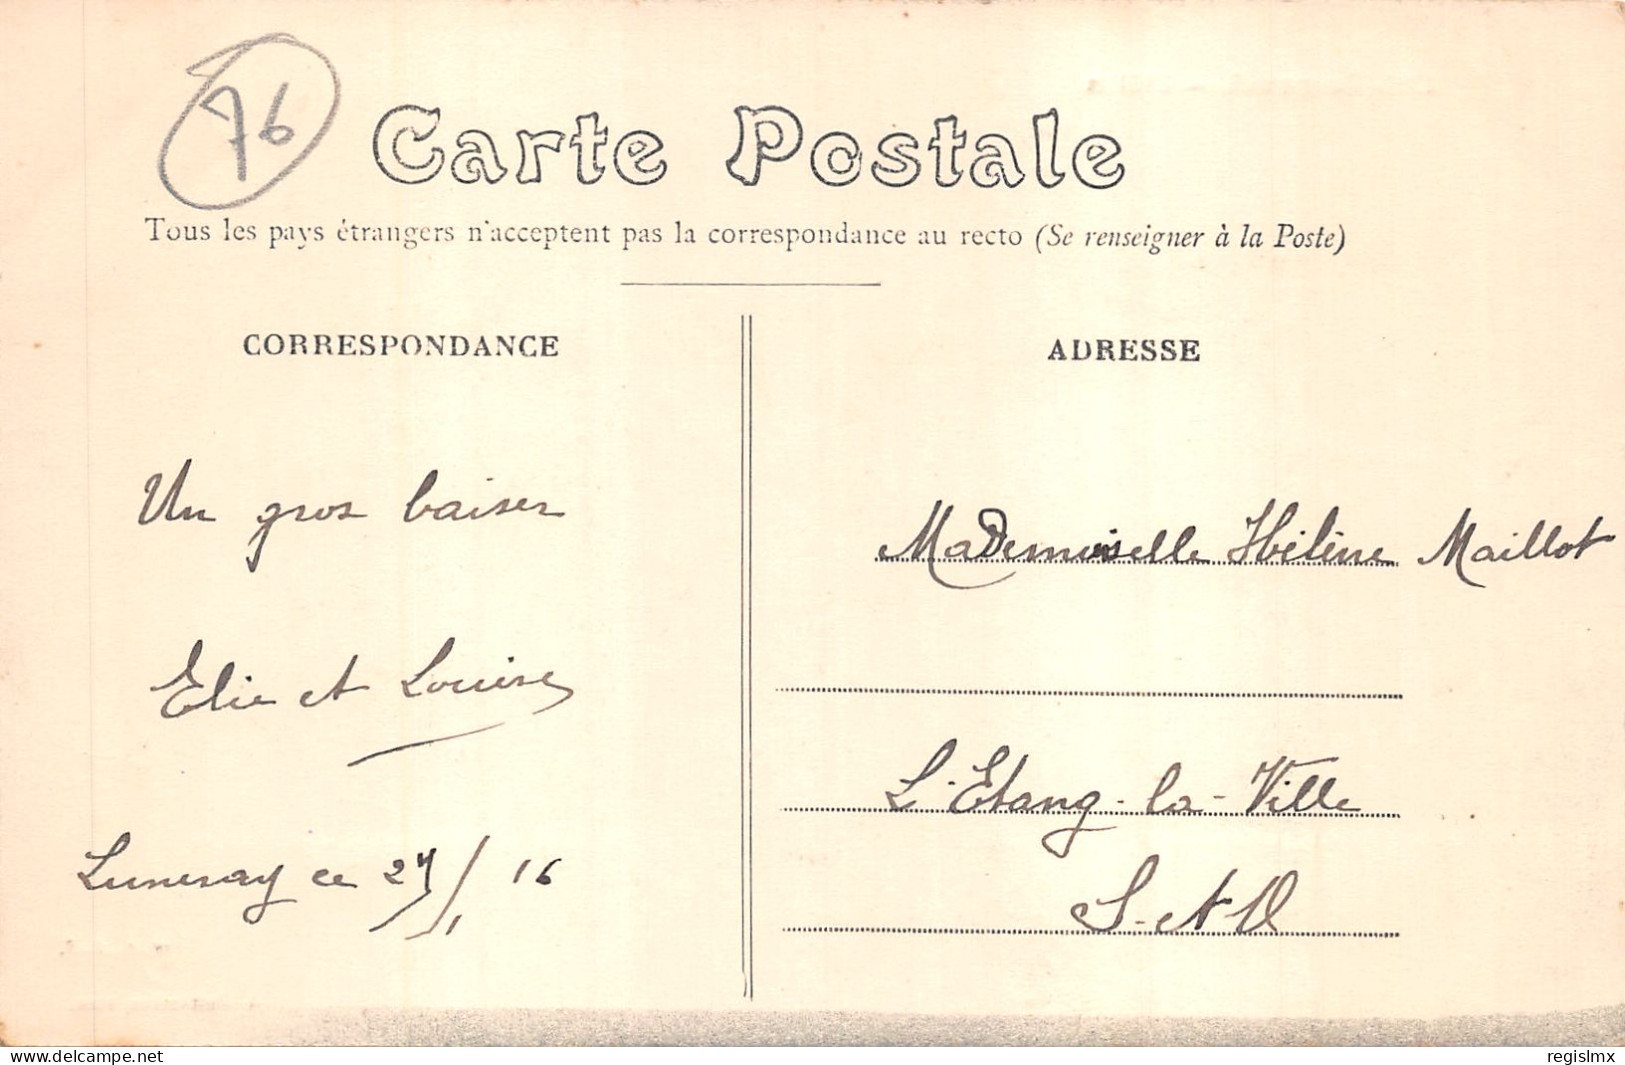 76
Carte Postale
Tous les pays étrangers n'acceptent pas la correspondance au recto (Se renseigner à la Poste)
CORRESPONDANCE
Un gros baiser
Elie et Louise
Luneray ce 27/1 16
ADRESSE
MaDemoiselle Hélène Maillot
L'Etang-la-Ville
S-et O
delcampe.net
regislmx